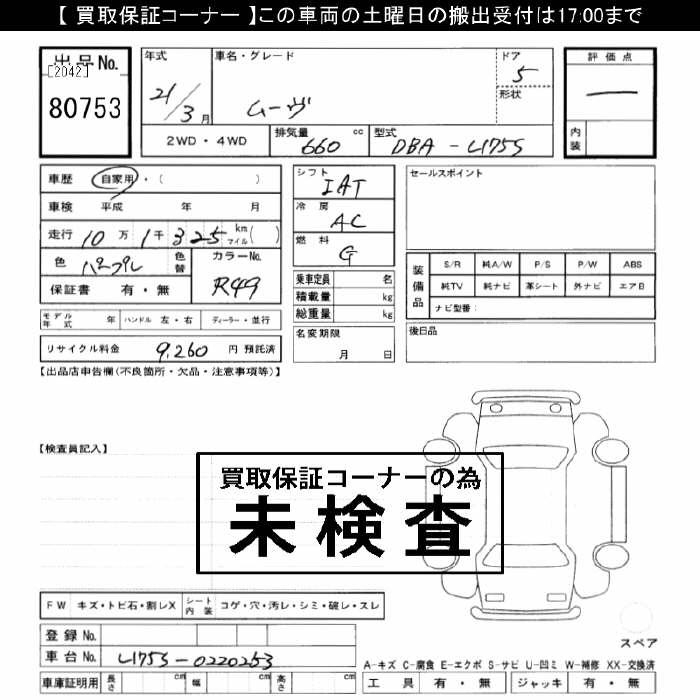 【 買取保証コーナー 】この車両の土曜日の搬出受付は17:00まで
出品No.
[2042]
80753
年式
21/3月
車名・グレード
ムーヴ
ドア
5
形状
評価点
―
内装
2WD・4WD
排気量
660 cc
型式
DBA-L175S
車歴 自家用・( )
車検 平成 年 月
走行 10万1千325 km マイル( )
色 パープル
色替
カラーNo.
R49
保証書 有・無
シフト
IAT
冷房
AC
燃料
G
乗車定員 名
積載量 kg
総重量 kg
名変期限
月 日
セールスポイント
装備品
S/R 純A/W P/S P/W ABS
純TV 純ナビ 革シート 外ナビ エアB
ナビ型番:
後日品
モデル年式 年 ハンドル 左・右 ディーラー・並行
リサイクル料金 9,260 円 預託済
【出品店申告欄(不良箇所・欠品・注意事項等)】
【検査員記入】
買取保証コーナーの為
未検査
FW キズ・トビ石・割レX シート内装 コゲ・穴・汚レ・シミ・破レ・スレ
登録 No.
車台 No. L175S-0220253
車庫証明用 長さ cm 幅 cm 高さ cm
スペア
A-キズ C-腐食 E-エクボ S-サビ U-凹ミ W-補修 XX-交換済
工具 有・無 ジャッキ 有・無